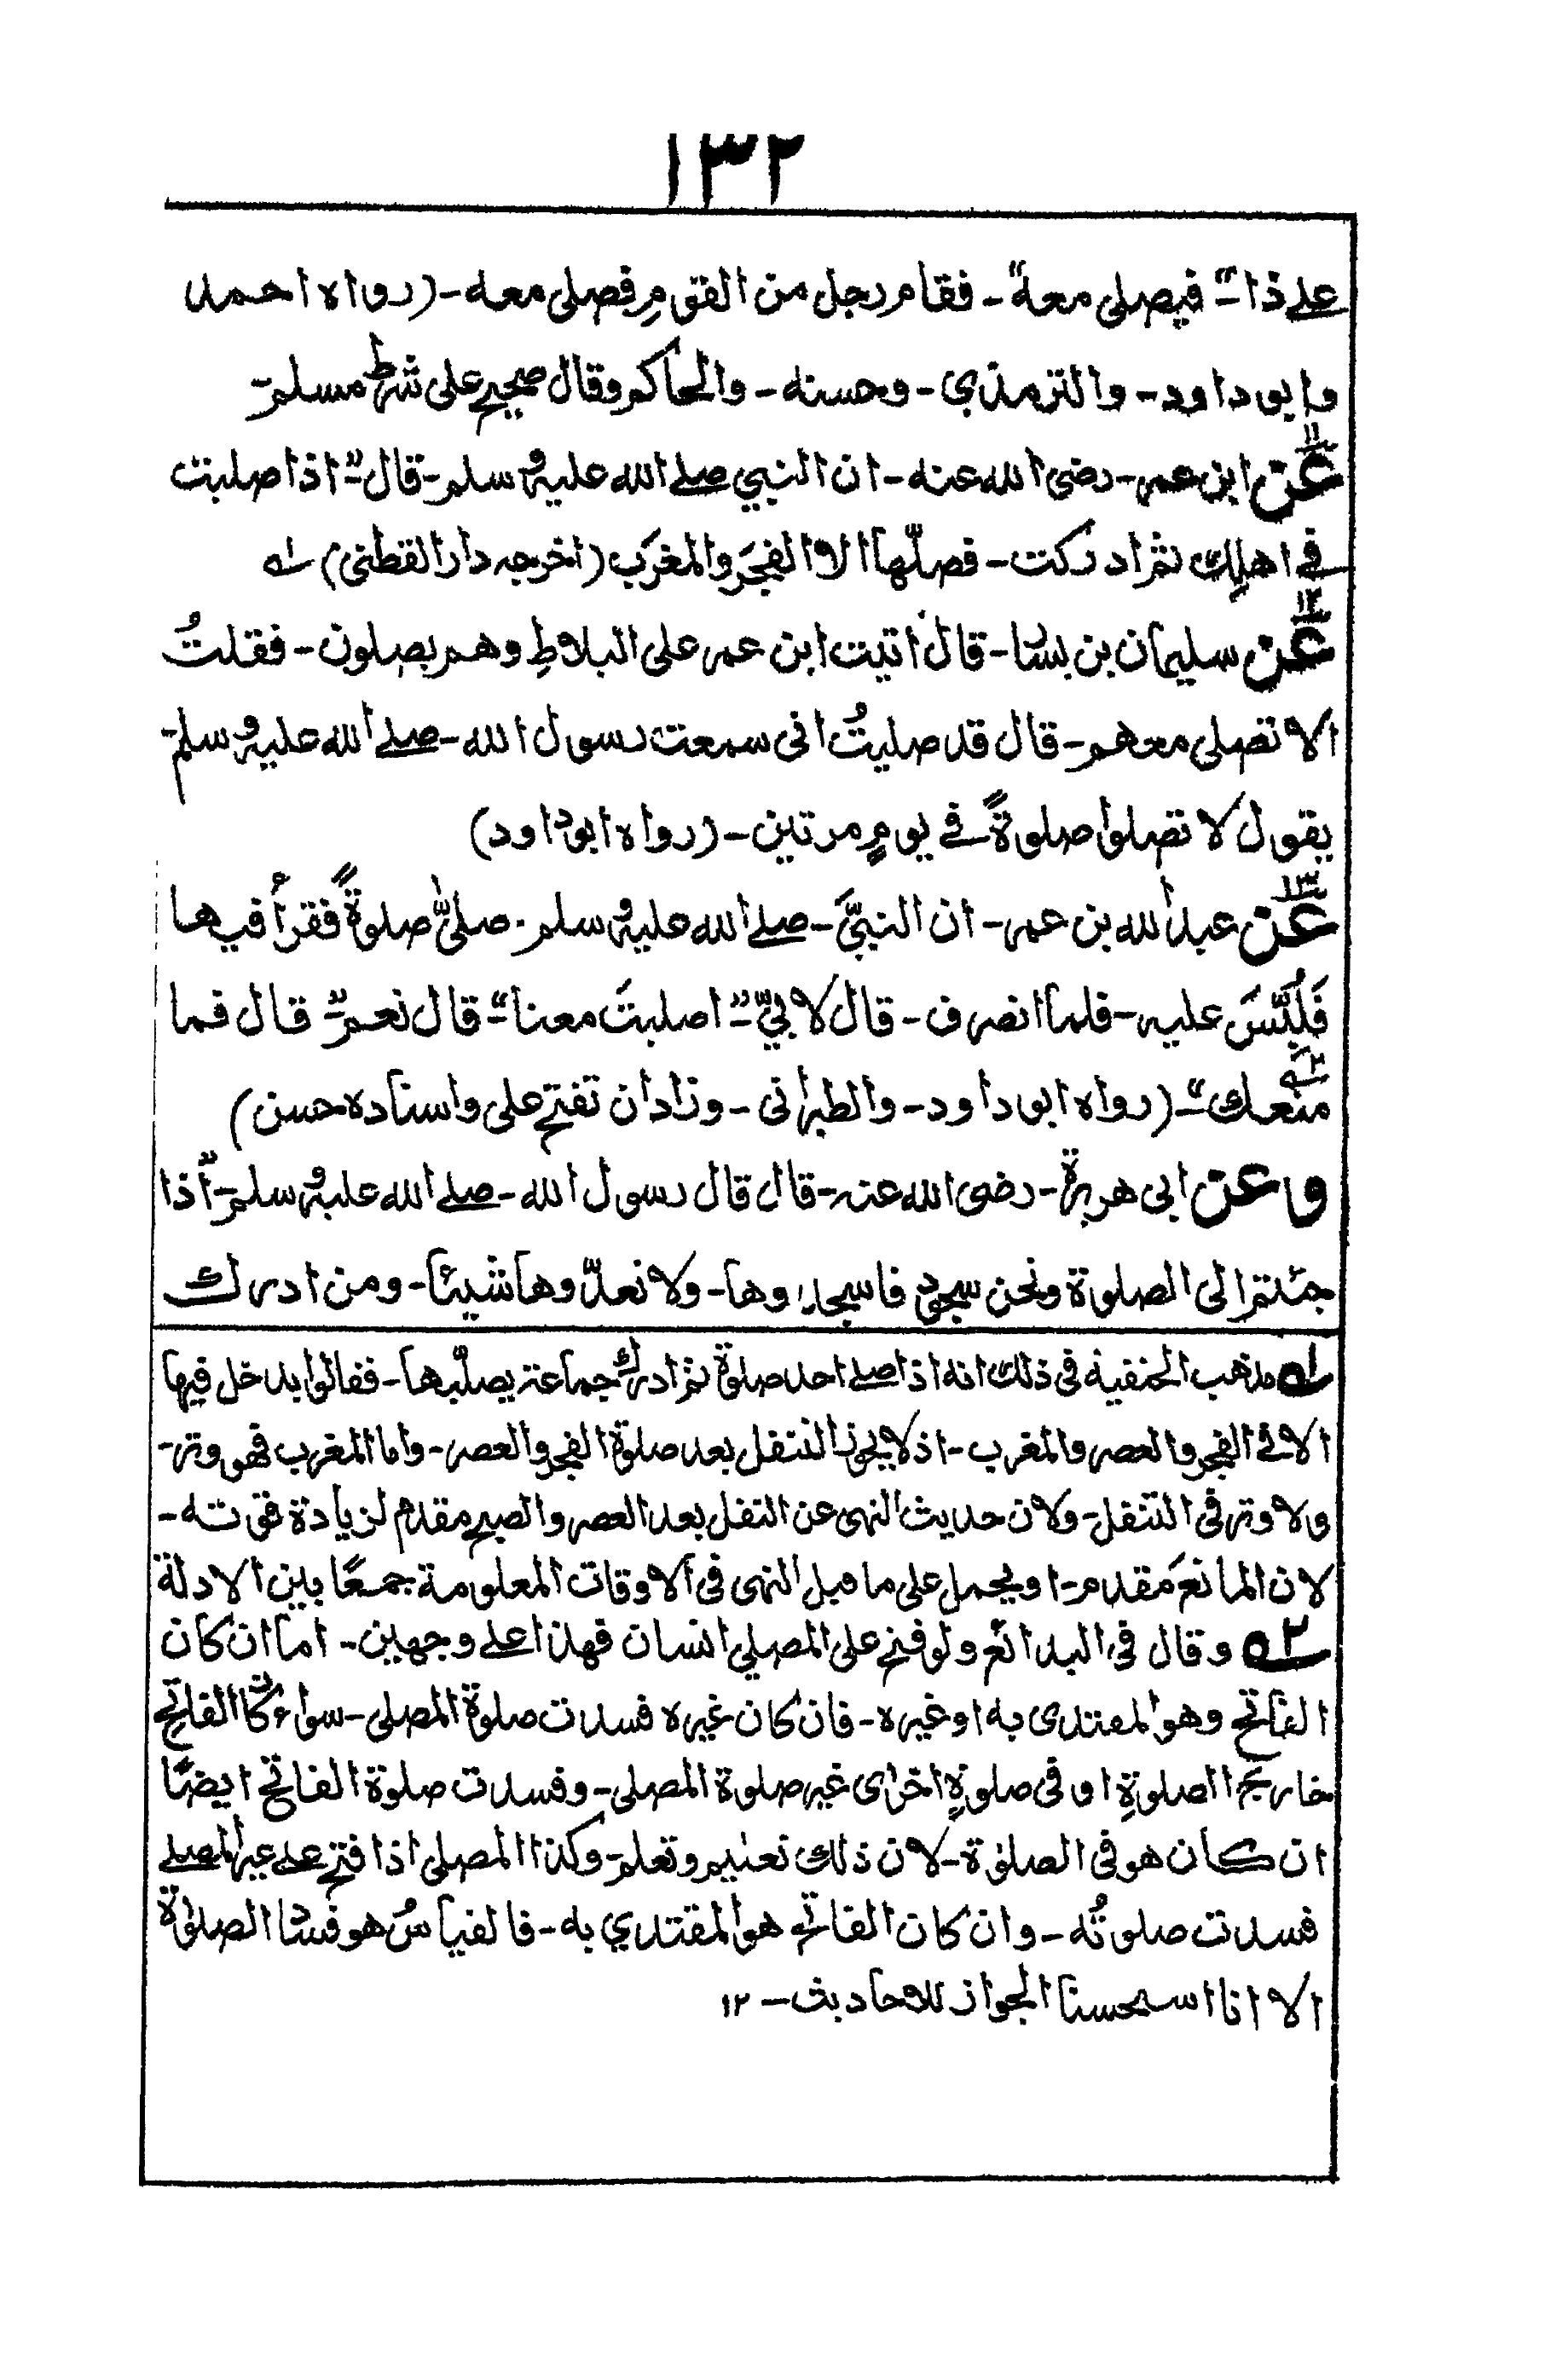 ١٣٢
على ذا" فيصلى معه" - فقام رجل من القوم فصلى معه - (رواه احمد
وابو داود - والترمذي - وحسنه - والحاكم وقال صحيح على شرط مسلم -
١١
عن ابن عمر - رضى الله عنه - ان النبي صلى الله عليه وسلم - قال "اذا صليت
فى اهلك ثم ادركت - فصلّها الا الفجر والمغرب (اخرجه دار القطنى) ١ه
١٢
عن سليمان بن يسار - قال اتيت ابن عمر على البلاط وهم يصلون - فقلتُ
الا تصلى معهم - قال قد صليتُ انى سمعت رسول الله - صلى الله عليه وسلم -
يقول لا تصلوا صلوةً فى يومٍ مرتين - (رواه ابو داود)
١٣
عن عبد الله بن عمر - ان النبيَّ - صلى الله عليه وسلم . صلىّٰ صلوةً فقرأ فيها
فَلُبِّسَ عليه - فلما انصرف - قال لابيٍّ "اصليتَ معنا" - قال نعم" قال فما
منعك" ٢ه - (رواه ابو داود - والطبرانى - وزاد ان تفتح على واسناده حسن)
وعن ابى هريرة - رضى الله عنه - قال قال رسول الله - صلى الله عليه وسلم - "اذا
جئتم الى الصلوة ونحن سجود فاسجدوها - ولا تعدّوها شيئا - ومن ادرك
١ه مذهب الحنفية فى ذلك انه اذا صلى احد صلوة ثم ادرك جماعة يصليها - فقالوا يدخل فيها
الا فى الفجر والعصر والمغرب - اذ لا يجوز التنفل بعد صلوة الفجر والعصر - واما المغرب فهى وتر -
ولا وتر فى التنفل - ولان حديث النهى عن النفل بعد العصر والصبح مقدم لزيادة قوته -
لان المانعَ مقدم - او يحمل على ما قبل النهى فى الاوقات المعلومة جمعًا بين الادلة
٢ه وقال فى البدائع ولو فتح على المصلي انسان فهذا على وجهين - اما ان كان
الفاتح وهو المقتدى به او غيره - فان كان غيره فسدت صلوة المصلى - سواء كان الفاتح
خارج الصلوةِ او فى صلوةٍ اخرٰى غير صلوة المصلى - وفسدت صلوة الفاتح ايضًا
ان كان هو فى الصلوٰة - لان ذلك تعليم وتعلم - وكذا المصلى اذا فتح على غير المصلى
فسدت صلوتُه - وان كان الفاتح هو المقتدي به - فالقياسُ هو فساد الصلوٰة
الا انا استحسنا الجواز للاحاديث - ١٢